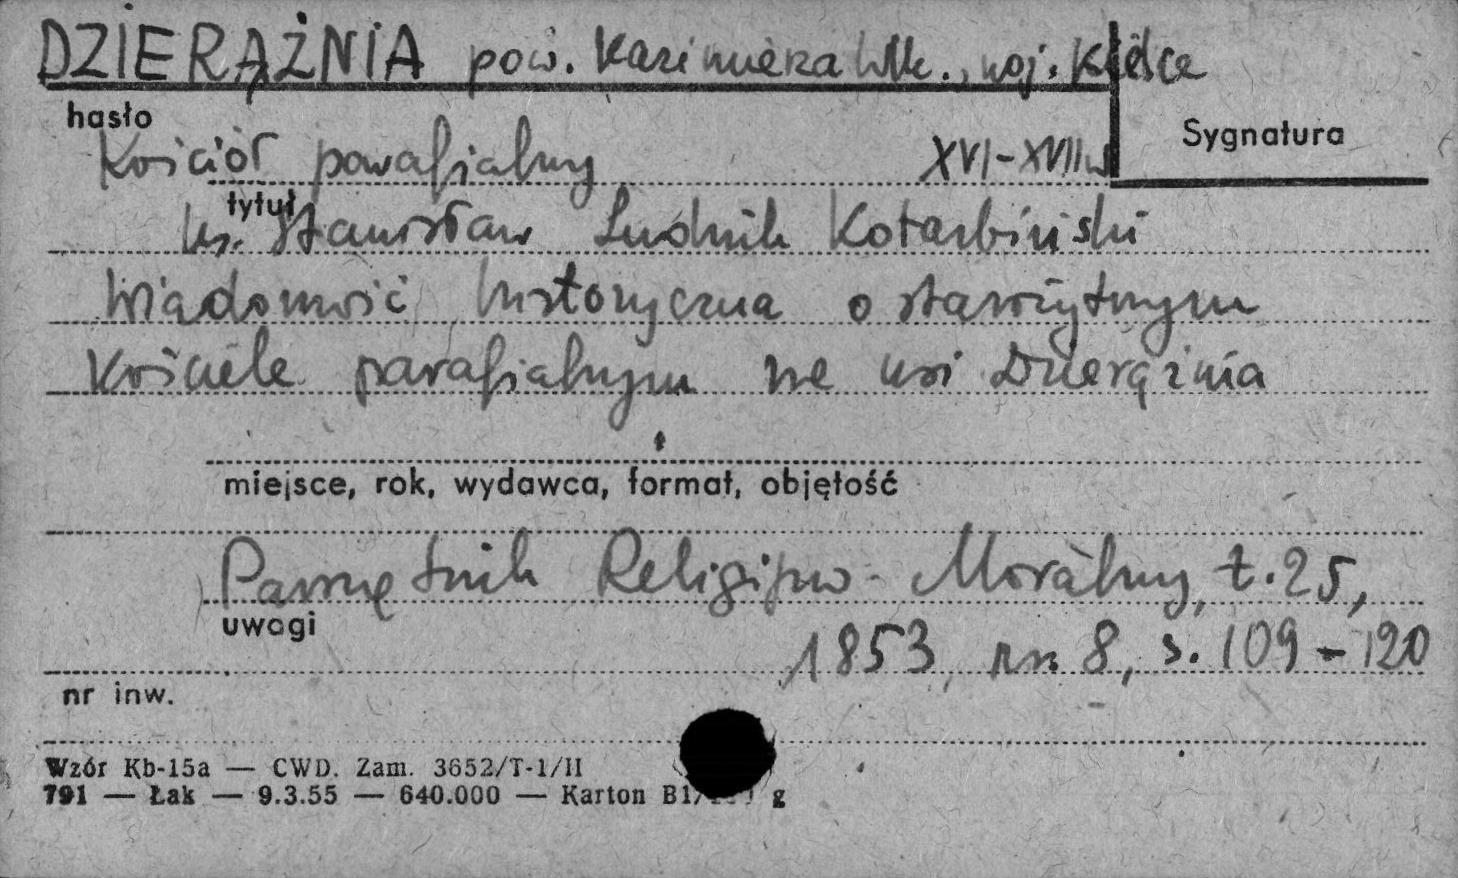 DZIERĄŻNIA pow. Kazimierza Wlk., woj. Kielce
hasło
Sygnatura
Kościół parafialny XVI-XVIIw
tytuł
ks. Stanisław Ludwik Kotarbiński
Wiadomość historyczna o starożytnym
kościele parafialnym we wsi Dzierążnia
miejsce, rok, wydawca, format, objętość
Pamiętnik Religijno-Moralny, t. 25,
uwagi
1853, nr 8, s. 109-120
nr inw.
Wzór Kb-15a — CWD. Zam. 3652/T-1/II
791 — Łak — 9.3.55 — 640.000 — Karton g